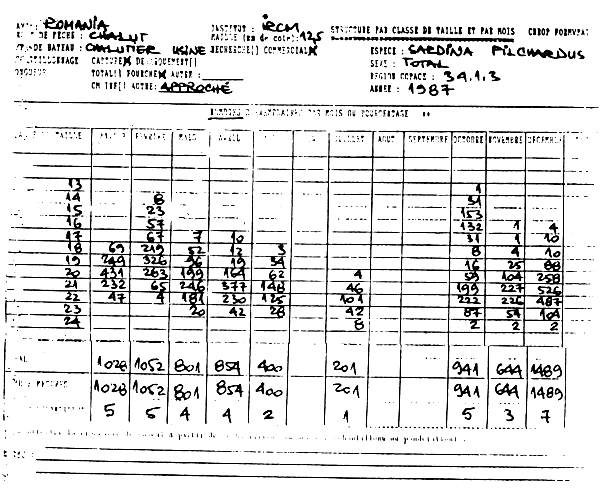 ROMANIA INSTITUT : IRCM STRUCTURE PAR CLASSE DE TAILLE ET PAR MOIS
DE PECHE : CHALUT MAILLE (en de coté): 125
DE BATEAU : CHALUTIER USINE RECHERCHE[] COMMERCIAL X ESPECE : SARDINA PILCHARDUS
CAPTURE X DEBARQUEMENT[] SEXE : TOTAL
TOTAL[] FOURCHE X AUTRE : REGION COPACE : 34.1.3
CM INF[] AUTRE: APPROCHÉ ANNEE : 1987
NOMBRE D'ECHANTILLONS PAR MOIS OU POURCENTAGE **
TAILLE JANVIER FEVRIER MARS AVRIL JUILLET AOUT SEPTEMBRE OCTOBRE NOVEMBRE DECEMBRE
13 1
14 8 31
15 23 153
16 57 132 1 4
17 67 7 10 31 1 10
18 69 219 52 12 3 8 4 10
19 249 326 96 19 34 16 25 88
20 431 283 199 164 62 4 59 104 258
21 232 65 246 377 148 46 199 227 526
22 47 4 181 230 125 101 222 226 487
23 20 42 28 42 87 54 104
24 8 2 2 2
1028 1052 801 854 400 201 941 644 1489
1028 1052 801 854 400 201 941 644 1489
5 5 4 4 2 1 5 3 7